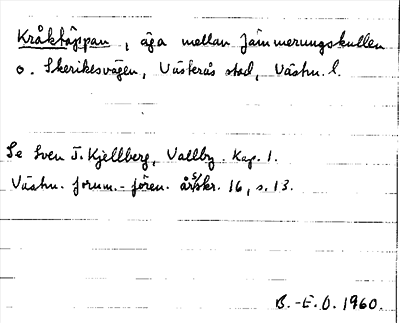 Kråktäppan, äga mellan Jämmerungskullen
o. Skerikesvägen, Västerås stad, Västm. l.
Se Sven T. Kjellberg, Vallby. Kap. 1.
Västm. fornm.-fören. årsskr. 16, s. 13.
B.-E.O. 1960.